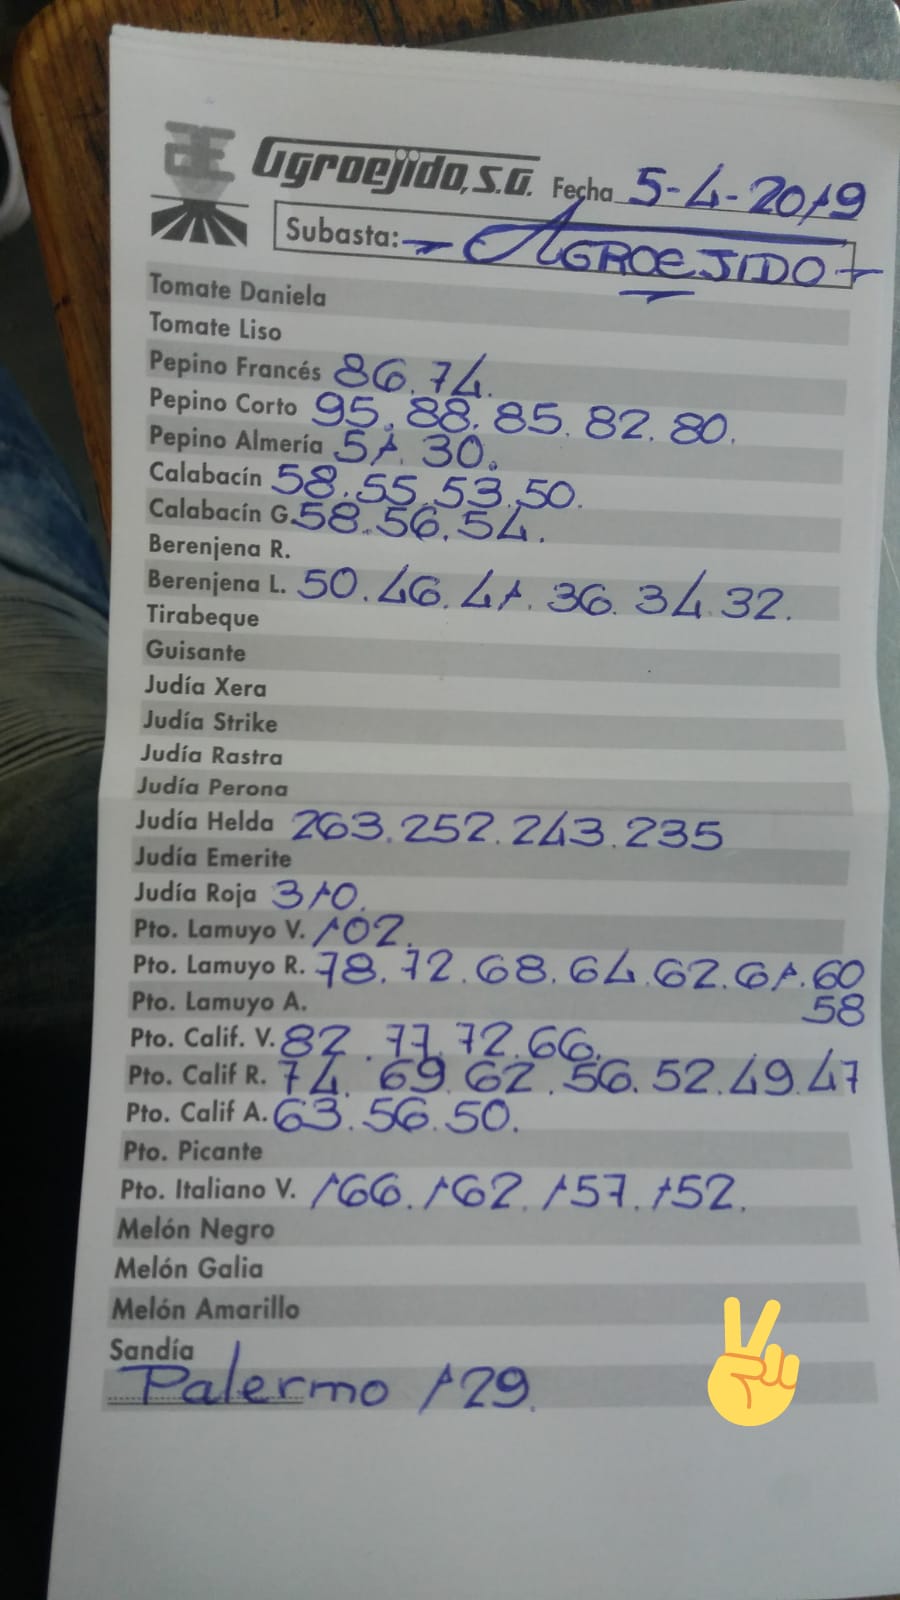 Agroejido, S.A. Fecha 5-4-2019
Subasta: - AGROEJIDO -
Tomate Daniela
Tomate Liso
Pepino Francés 86.74.
Pepino Corto 95.88.85.82.80.
Pepino Almería 51.30.
Calabacín 58.55.53.50.
Calabacín G. 58.56.54.
Berenjena R.
Berenjena L. 50.46.41.36.34.32.
Tirabeque
Guisante
Judía Xera
Judía Strike
Judía Rastra
Judía Perona
Judía Helda 263.252.243.235
Judía Emerite
Judía Roja 310.
Pto. Lamuyo V. 102.
Pto. Lamuyo R. 78.72.68.64.62.61.60
Pto. Lamuyo A. 58
Pto. Calif. V. 82.77.72.66.
Pto. Calif R. 74.69.62.56.52.49.47
Pto. Calif A. 63.56.50.
Pto. Picante
Pto. Italiano V. 166.162.157.152.
Melón Negro
Melón Galia
Melón Amarillo
Sandía
Palermo 129.